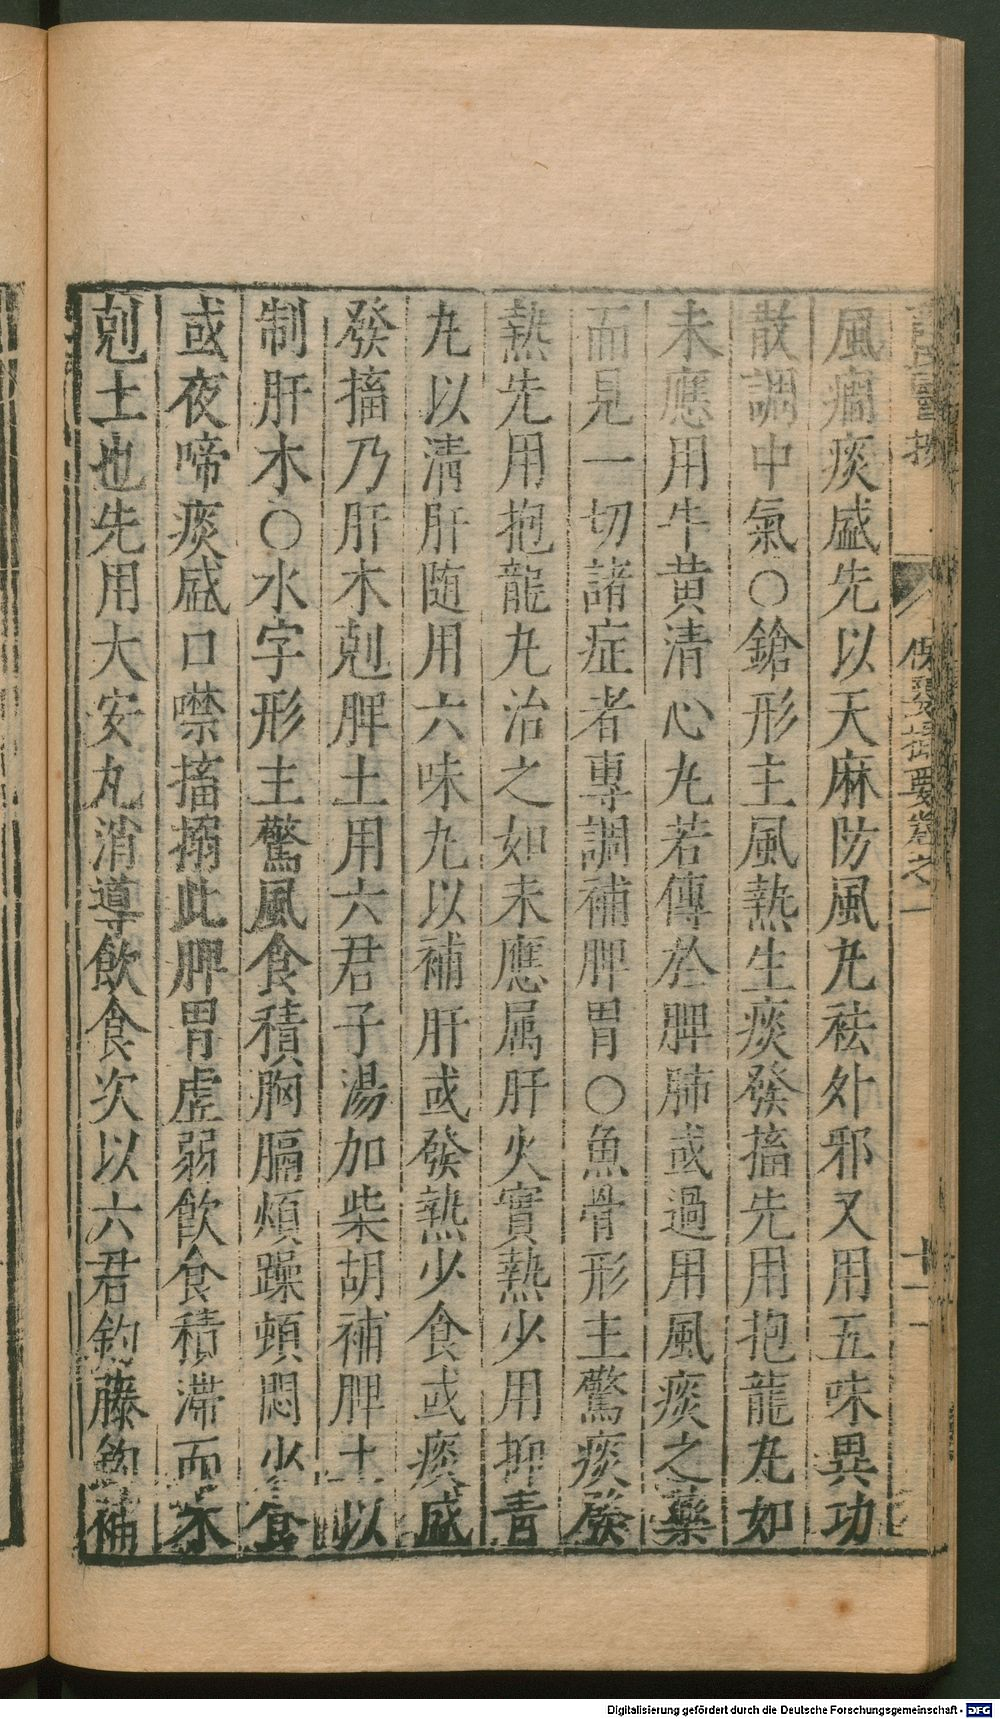 保嬰撮要卷之一
十一
風癇痰盛先以天麻防風丸袪外邪又用五味異功
散調中氣○鎗形主風熱生痰發搐先用抱龍丸如
未應用牛黄清心丸若傳於脾肺或過用風痰之藥
而見一切諸症者專調補脾胃○魚骨形主驚痰發
熱先用抱龍丸治之如未應属肝火實熱少用抑青
丸以清肝随用六味丸以補肝或發熱少食或痰盛
發搐乃肝木剋脾土用六君子湯加柴胡補脾土以
制肝木○水字形主驚風食積胸膈煩躁頓悶少食
或夜啼痰盛口噤搐搦此脾胃虚弱飲食積滞而木
剋土也先用大安丸消導飲食次以六君鈎藤鈎補
Digitalisierung gefördert durch die Deutsche Forschungsgemeinschaft - DFG